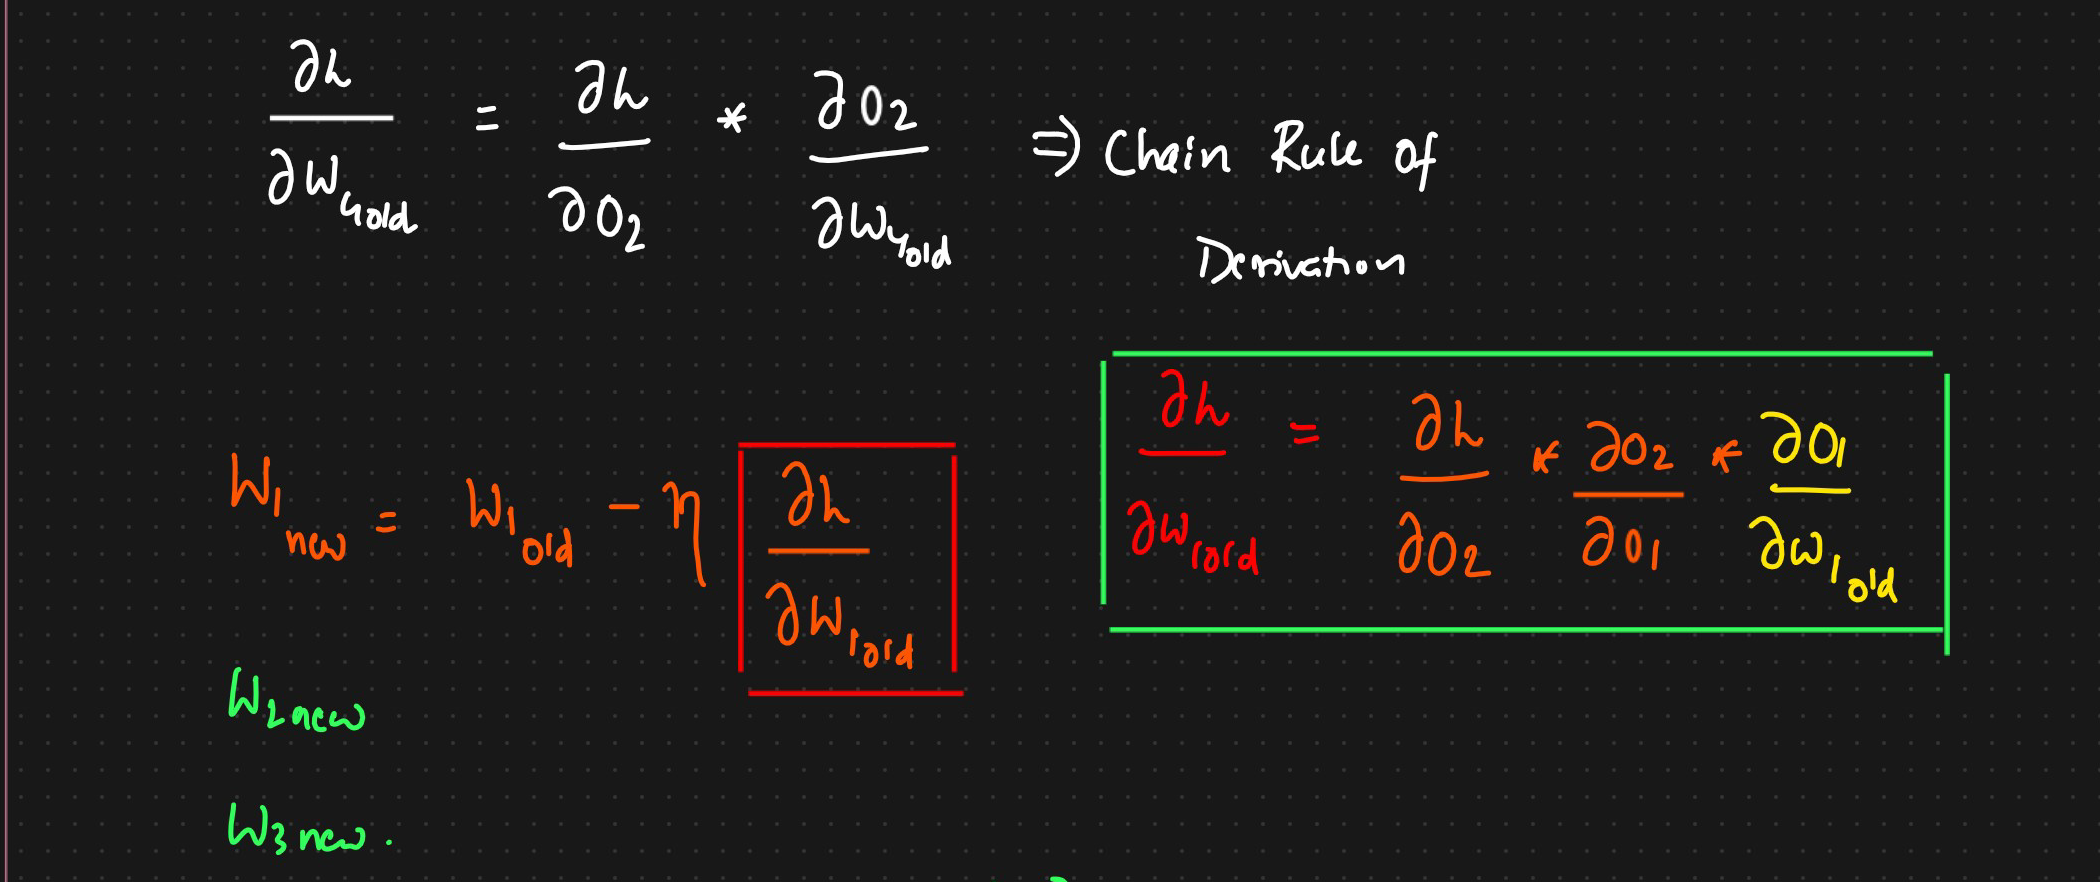 ∂h/∂W4old = ∂h/∂O2 * ∂O2/∂W4old ⇒ Chain Rule of
Derivation
W1new = W1old - η ∂h/∂W1old
∂h/∂W1old = ∂h/∂O2 * ∂O2/∂O1 * ∂O1/∂W1old
W2new
W3new.